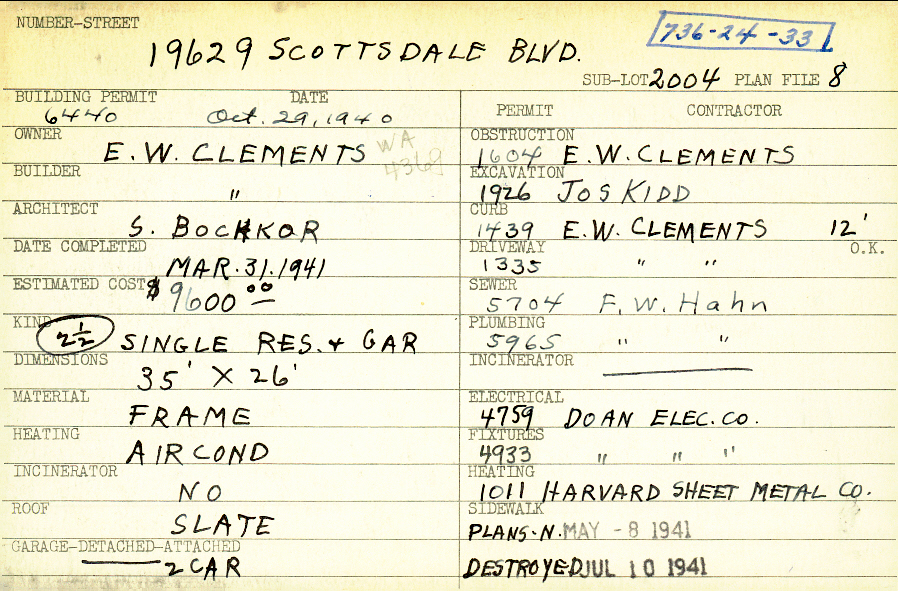 NUMBER-STREET
19629 SCOTTSDALE BLVD.
736-24-33
SUB-LOT 2004 PLAN FILE 8
BUILDING PERMIT DATE
6440 Oct. 29, 1940
OWNER
E.W. CLEMENTS WA 4369
BUILDER
"
ARCHITECT
S. BOCHKOR
DATE COMPLETED
MAR. 31. 1941
ESTIMATED COST $ 9600 00
KIND
2 1/2 SINGLE RES. + GAR
DIMENSIONS
35' X 26'
MATERIAL
FRAME
HEATING
AIR COND
INCINERATOR
NO
ROOF
SLATE
GARAGE-DETACHED-ATTACHED
2 CAR
PERMIT CONTRACTOR
OBSTRUCTION
1604 E.W. CLEMENTS
EXCAVATION
1926 JOS KIDD
CURB
1439 E.W. CLEMENTS 12'
DRIVEWAY O.K.
1335 " "
SEWER
5704 F. W. Hahn
PLUMBING
5965 " "
INCINERATOR
ELECTRICAL
4759 DOAN ELEC. CO.
FIXTURES
4933 " " "
HEATING
1011 HARVARD SHEET METAL CO.
SIDEWALK
PLANS-N. MAY -8 1941
DESTROYED JUL 10 1941